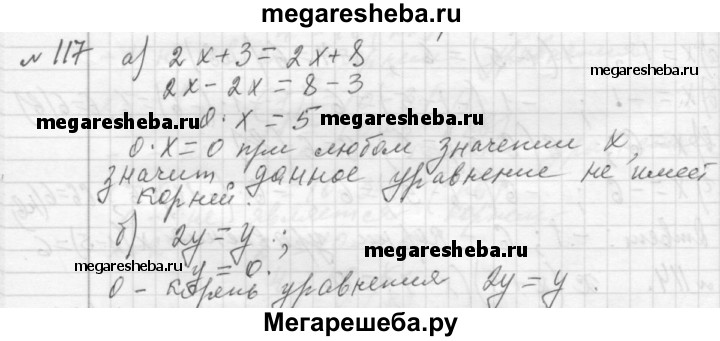 megaresheba.ru
№ 117 а) 2x+3=2x+8
2x-2x=8-3
megaresheba.ru
megaresheba.ru 0·x=5 megaresheba.ru
0·x=0 при любом значении x,
значит данное уравнение не имеет
корней.
б) 2y=y;
megaresheba.ru
megaresheba.ru y=0.
0 - корень уравнения 2y=y.
Мегарешеба.ру